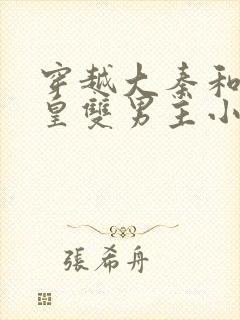 穿越大秦和
皇雙男主小
張希舟